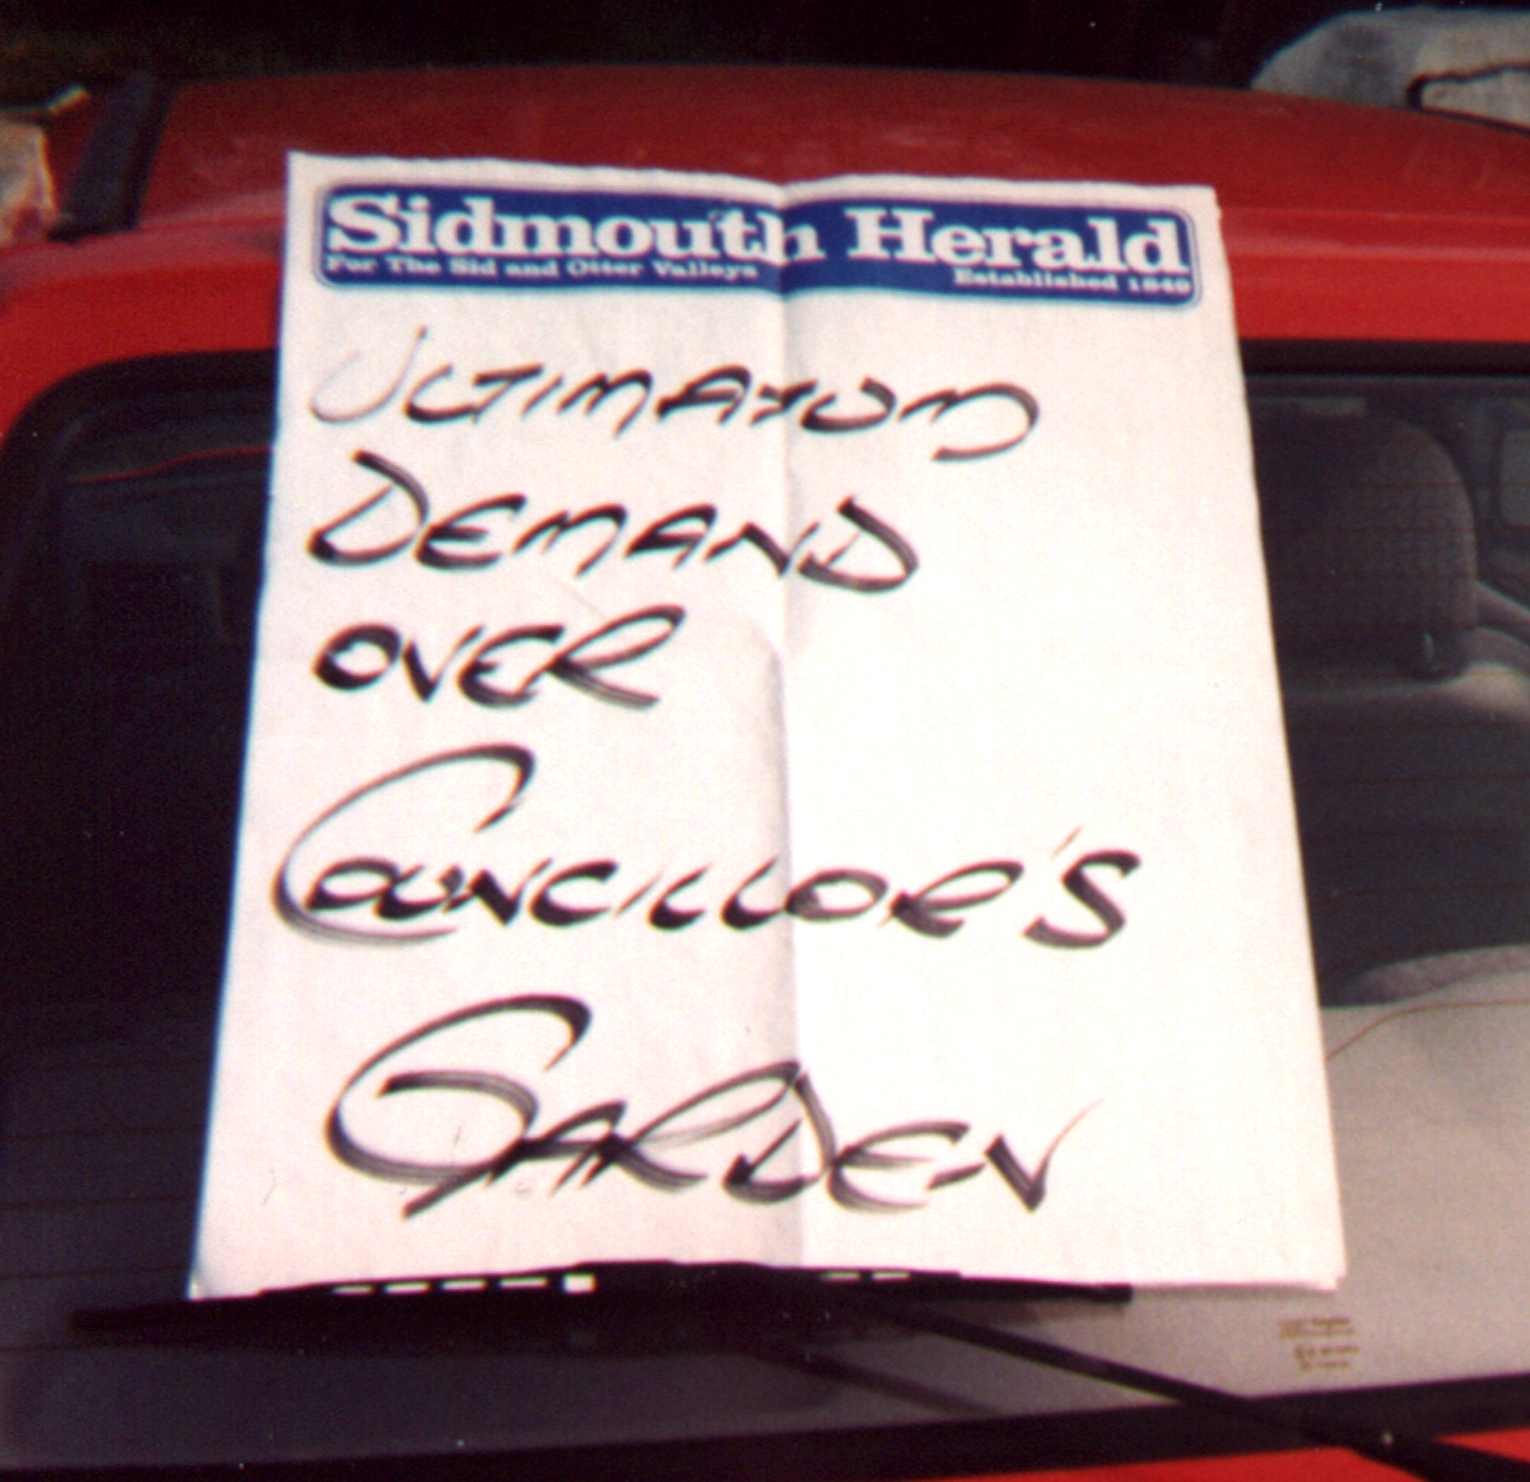 Sidmouth Herald
For The Sid and Otter Valleys Established 1849
ULTIMATUM
DEMAND
OVER
COUNCILLOR'S
GARDEN